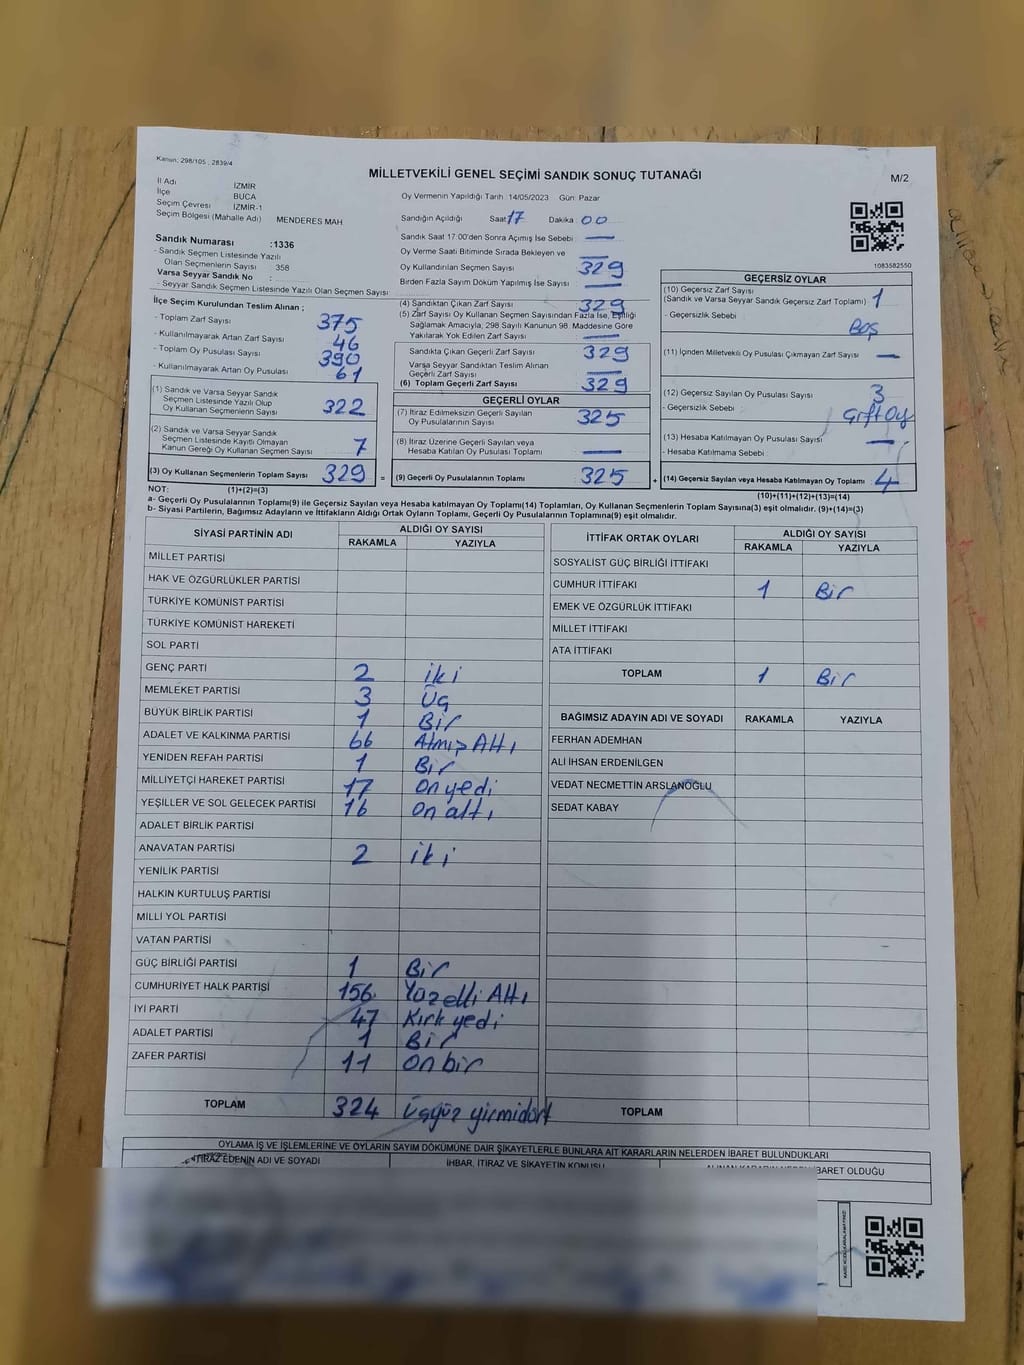 Kanun; 298/105 , 2839/4
MİLLETVEKİLİ GENEL SEÇİMİ SANDIK SONUÇ TUTANAĞI
M/2
İl Adı İZMİR
İlçe BUCA
Seçim Çevresi İZMİR-1
Seçim Bölgesi (Mahalle Adı) MENDERES MAH
Sandık Numarası :1336
- Sandık Seçmen Listesinde Yazılı
Olan Seçmenlerin Sayısı 358
Varsa Seyyar Sandık No :
- Seyyar Sandık Seçmen Listesinde Yazılı Olan Seçmen Sayısı
İlçe Seçim Kurulundan Teslim Alınan ;
- Toplam Zarf Sayısı 375
- Kullanılmayarak Artan Zarf Sayısı 46
- Toplam Oy Pusulası Sayısı 390
- Kullanılmayarak Artan Oy Pusulası 61
(1) Sandık ve Varsa Seyyar Sandık
Seçmen Listesinde Yazılı Olup
Oy Kullanan Seçmenlerin Sayısı 322
(2) Sandık ve Varsa Seyyar Sandık
Seçmen Listesinde Kayıtlı Olmayan
Kanun Gereği Oy Kullanan Seçmen Sayısı 7
(3) Oy Kullanan Seçmenlerin Toplam Sayısı 329 =
Oy Vermenin Yapıldığı Tarih 14/05/2023 Gün: Pazar
Sandığın Açıldığı Saat 17 Dakika 00
Sandık Saat 17:00'den Sonra Açımış İse Sebebi —
Oy Verme Saati Bitiminde Sırada Bekleyen ve —
Oy Kullandırılan Seçmen Sayısı 329
Birden Fazla Sayım Döküm Yapılmış İse Sayısı —
(4) Sandıktan Çıkan Zarf Sayısı 329
(5) Zarf Sayısı Oy Kullanan Seçmen Sayısından Fazla İse, Eşitliği
Sağlamak Amacıyla, 298 Sayılı Kanunun 98. Maddesine Göre
Yakılarak Yok Edilen Zarf Sayısı —
Sandıkta Çıkan Geçerli Zarf Sayısı 329
Varsa Seyyar Sandıktan Teslim Alınan
Geçerli Zarf Sayısı —
(6) Toplam Geçerli Zarf Sayısı 329
GEÇERLİ OYLAR
(7) İtiraz Edilmeksizin Geçerli Sayılan
Oy Pusulalarının Sayısı 325
(8) İtiraz Üzerine Geçerli Sayılan veya
Hesaba Katılan Oy Pusulası Toplamı —
(9) Geçerli Oy Pusulalarının Toplamı 325 +
1083582550
GEÇERSİZ OYLAR
(10) Geçersiz Zarf Sayısı
(Sandık ve Varsa Seyyar Sandık Geçersiz Zarf Toplamı) 1
- Geçersizlik Sebebi
Boş
(11) İçinden Milletvekili Oy Pusulası Çıkmayan Zarf Sayısı —
(12) Geçersiz Sayılan Oy Pusulası Sayısı 3
- Geçersizlik Sebebi Çift Oy
(13) Hesaba Katılmayan Oy Pusulası Sayısı —
- Hesaba Katılmama Sebebi
(14) Geçersiz Sayılan veya Hesaba Katılmayan Oy Toplamı 4
NOT: (1)+(2)=(3)
(10)+(11)+(12)+(13)=(14)
a- Geçerli Oy Pusulalarının Toplamı(9) ile Geçersiz Sayılan veya Hesaba Katılmayan Oy Toplamı(14) Toplamları, Oy Kullanan Seçmenlerin Toplam Sayısına(3) eşit olmalıdır. (9)+(14)=(3)
b- Siyasi Partilerin, Bağımsız Adayların ve İttifakların Aldığı Ortak Oyların Toplamı, Geçerli Oy Pusulalarının Toplamına(9) eşit olmalıdır.
SİYASİ PARTİNİN ADI ALDIĞI OY SAYISI
RAKAMLA YAZIYLA
MİLLET PARTİSİ
HAK VE ÖZGÜRLÜKLER PARTİSİ
TÜRKİYE KOMÜNİST PARTİSİ
TÜRKİYE KOMÜNİST HAREKETİ
SOL PARTİ
GENÇ PARTİ 2 iki
MEMLEKET PARTİSİ 3 Üç
BÜYÜK BİRLİK PARTİSİ 1 Bir
ADALET VE KALKINMA PARTİSİ 66 Atmış Altı
YENİDEN REFAH PARTİSİ 1 Bir
MİLLİYETÇİ HAREKET PARTİSİ 17 On yedi
YEŞİLLER VE SOL GELECEK PARTİSİ 16 On altı
ADALET BİRLİK PARTİSİ
ANAVATAN PARTİSİ 2 iki
YENİLİK PARTİSİ
HALKIN KURTULUŞ PARTİSİ
MİLLİ YOL PARTİSİ
VATAN PARTİSİ
GÜÇ BİRLİĞİ PARTİSİ 1 Bir
CUMHURİYET HALK PARTİSİ 156 Yüzelli Altı
İYİ PARTİ 47 Kırk yedi
ADALET PARTİSİ 1 Bir
ZAFER PARTİSİ 11 On bir
TOPLAM 324 Üçyüz yirmidört
İTTİFAK ORTAK OYLARI ALDIĞI OY SAYISI
RAKAMLA YAZIYLA
SOSYALİST GÜÇ BİRLİĞİ İTTİFAKI
CUMHUR İTTİFAKI 1 Bir
EMEK VE ÖZGÜRLÜK İTTİFAKI
MİLLET İTTİFAKI
ATA İTTİFAKI
TOPLAM 1 Bir
BAĞIMSIZ ADAYIN ADI VE SOYADI RAKAMLA YAZIYLA
FERHAN ADEMHAN
ALİ İHSAN ERDENİLGEN
VEDAT NECMETTİN ARSLANOĞLU
SEDAT KABAY
TOPLAM
OYLAMA İŞ VE İŞLEMLERİNE VE OYLARIN SAYIM DÖKÜMÜNE DAİR ŞİKAYETLERLE BUNLARA AİT KARARLARIN NELERDEN İBARET BULUNDUKLARI
İTİRAZ EDENİN ADI VE SOYADI İHBAR, İTİRAZ VE ŞİKAYETİN KONUSU ALINAN KARARIN NEDEN İBARET OLDUĞU